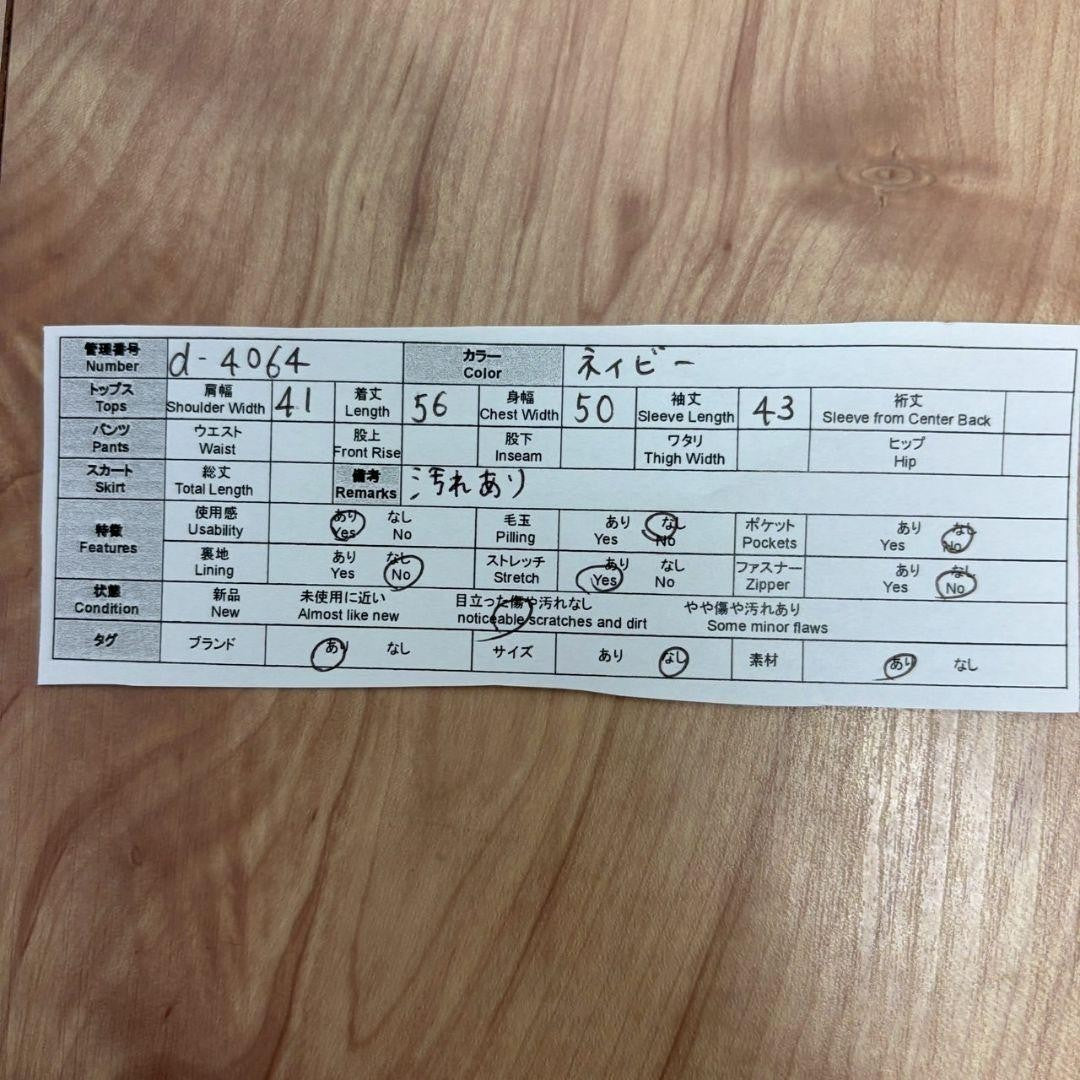 管理番号 Number d-4064 カラー Color ネイビー
トップス Tops 肩幅 Shoulder Width 41 着丈 Length 56 身幅 Chest Width 50 袖丈 Sleeve Length 43 裄丈 Sleeve from Center Back
パンツ Pants ウエスト Waist 股上 Front Rise 股下 Inseam ワタリ Thigh Width ヒップ Hip
スカート Skirt 総丈 Total Length 備考 Remarks 汚れあり
特徴 Features 使用感 Usability あり Yes なし No 毛玉 Pilling あり Yes なし No ポケット Pockets あり Yes なし No
裏地 Lining あり Yes なし No ストレッチ Stretch あり Yes なし No ファスナー Zipper あり Yes なし No
状態 Condition 新品 New 未使用に近い Almost like new 目立った傷や汚れなし noticeable scratches and dirt やや傷や汚れあり Some minor flaws
タグ ブランド あり なし サイズ あり なし 素材 あり なし